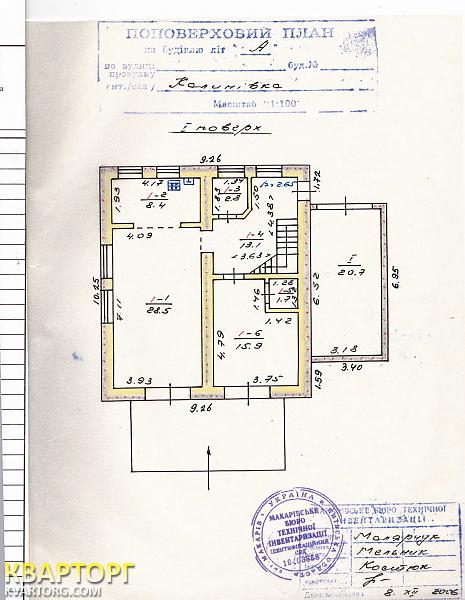 ПОПОВЕРХОВИЙ ПЛАН
на будівлю літ "А"
по вулиці
провулку
буд.№
смт./сел/ Калинівка
Масштаб 1:100
I поверх
9.26
4.17
1-2
8.4
1.93
1.34
1-3
2.8
1.83
1.50
h=2.65
1.72
4.09
4.38
1-4
13.1
3.63
I
20.7
10.25
7.11
1-1
28.5
6.52
6.95
1.26
1-5
1.77
1.46
1.42
4.79
1-6
15.9
3.93
3.75
3.18
3.40
1.59
9.26
УКРАЇНА
МАКАРІВСЬКЕ
БЮРО
ТЕХНІЧНОЇ
ІНВЕНТАРИЗАЦІЇ
БЮРО ТЕХНІЧНОЇ
ІНВЕНТАРИЗАЦІЇ
Малярчук
Мельник
Костюк
8. XII 2006
КВАРТОРГ
KVARTORG.COM